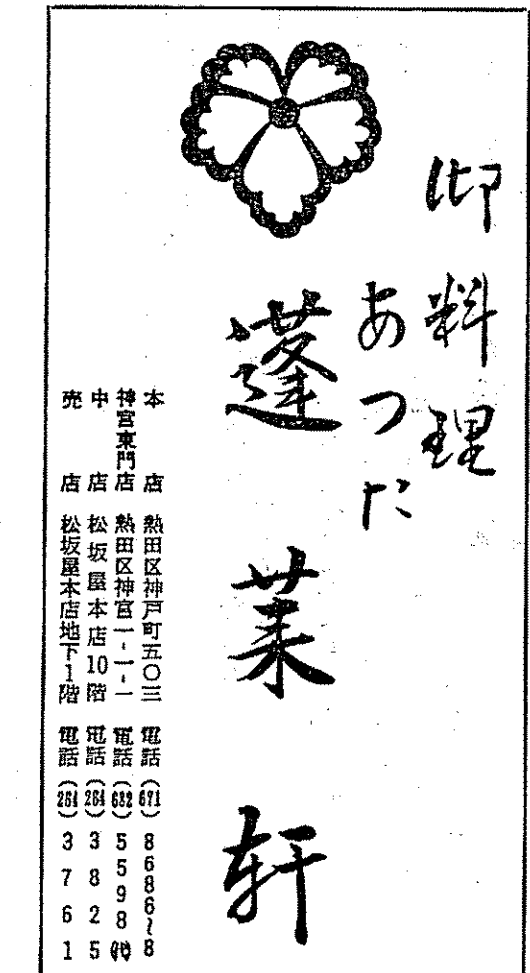 御料理
あつた
蓬莱軒
本店 熱田区神戸町五〇三 電話(671)8686~8
神宮東門店 熱田区神宮一-一-一 電話(682)5598㈹
中店 松坂屋本店10階 電話(264)3825
売店 松坂屋本店地下1階 電話(264)3761